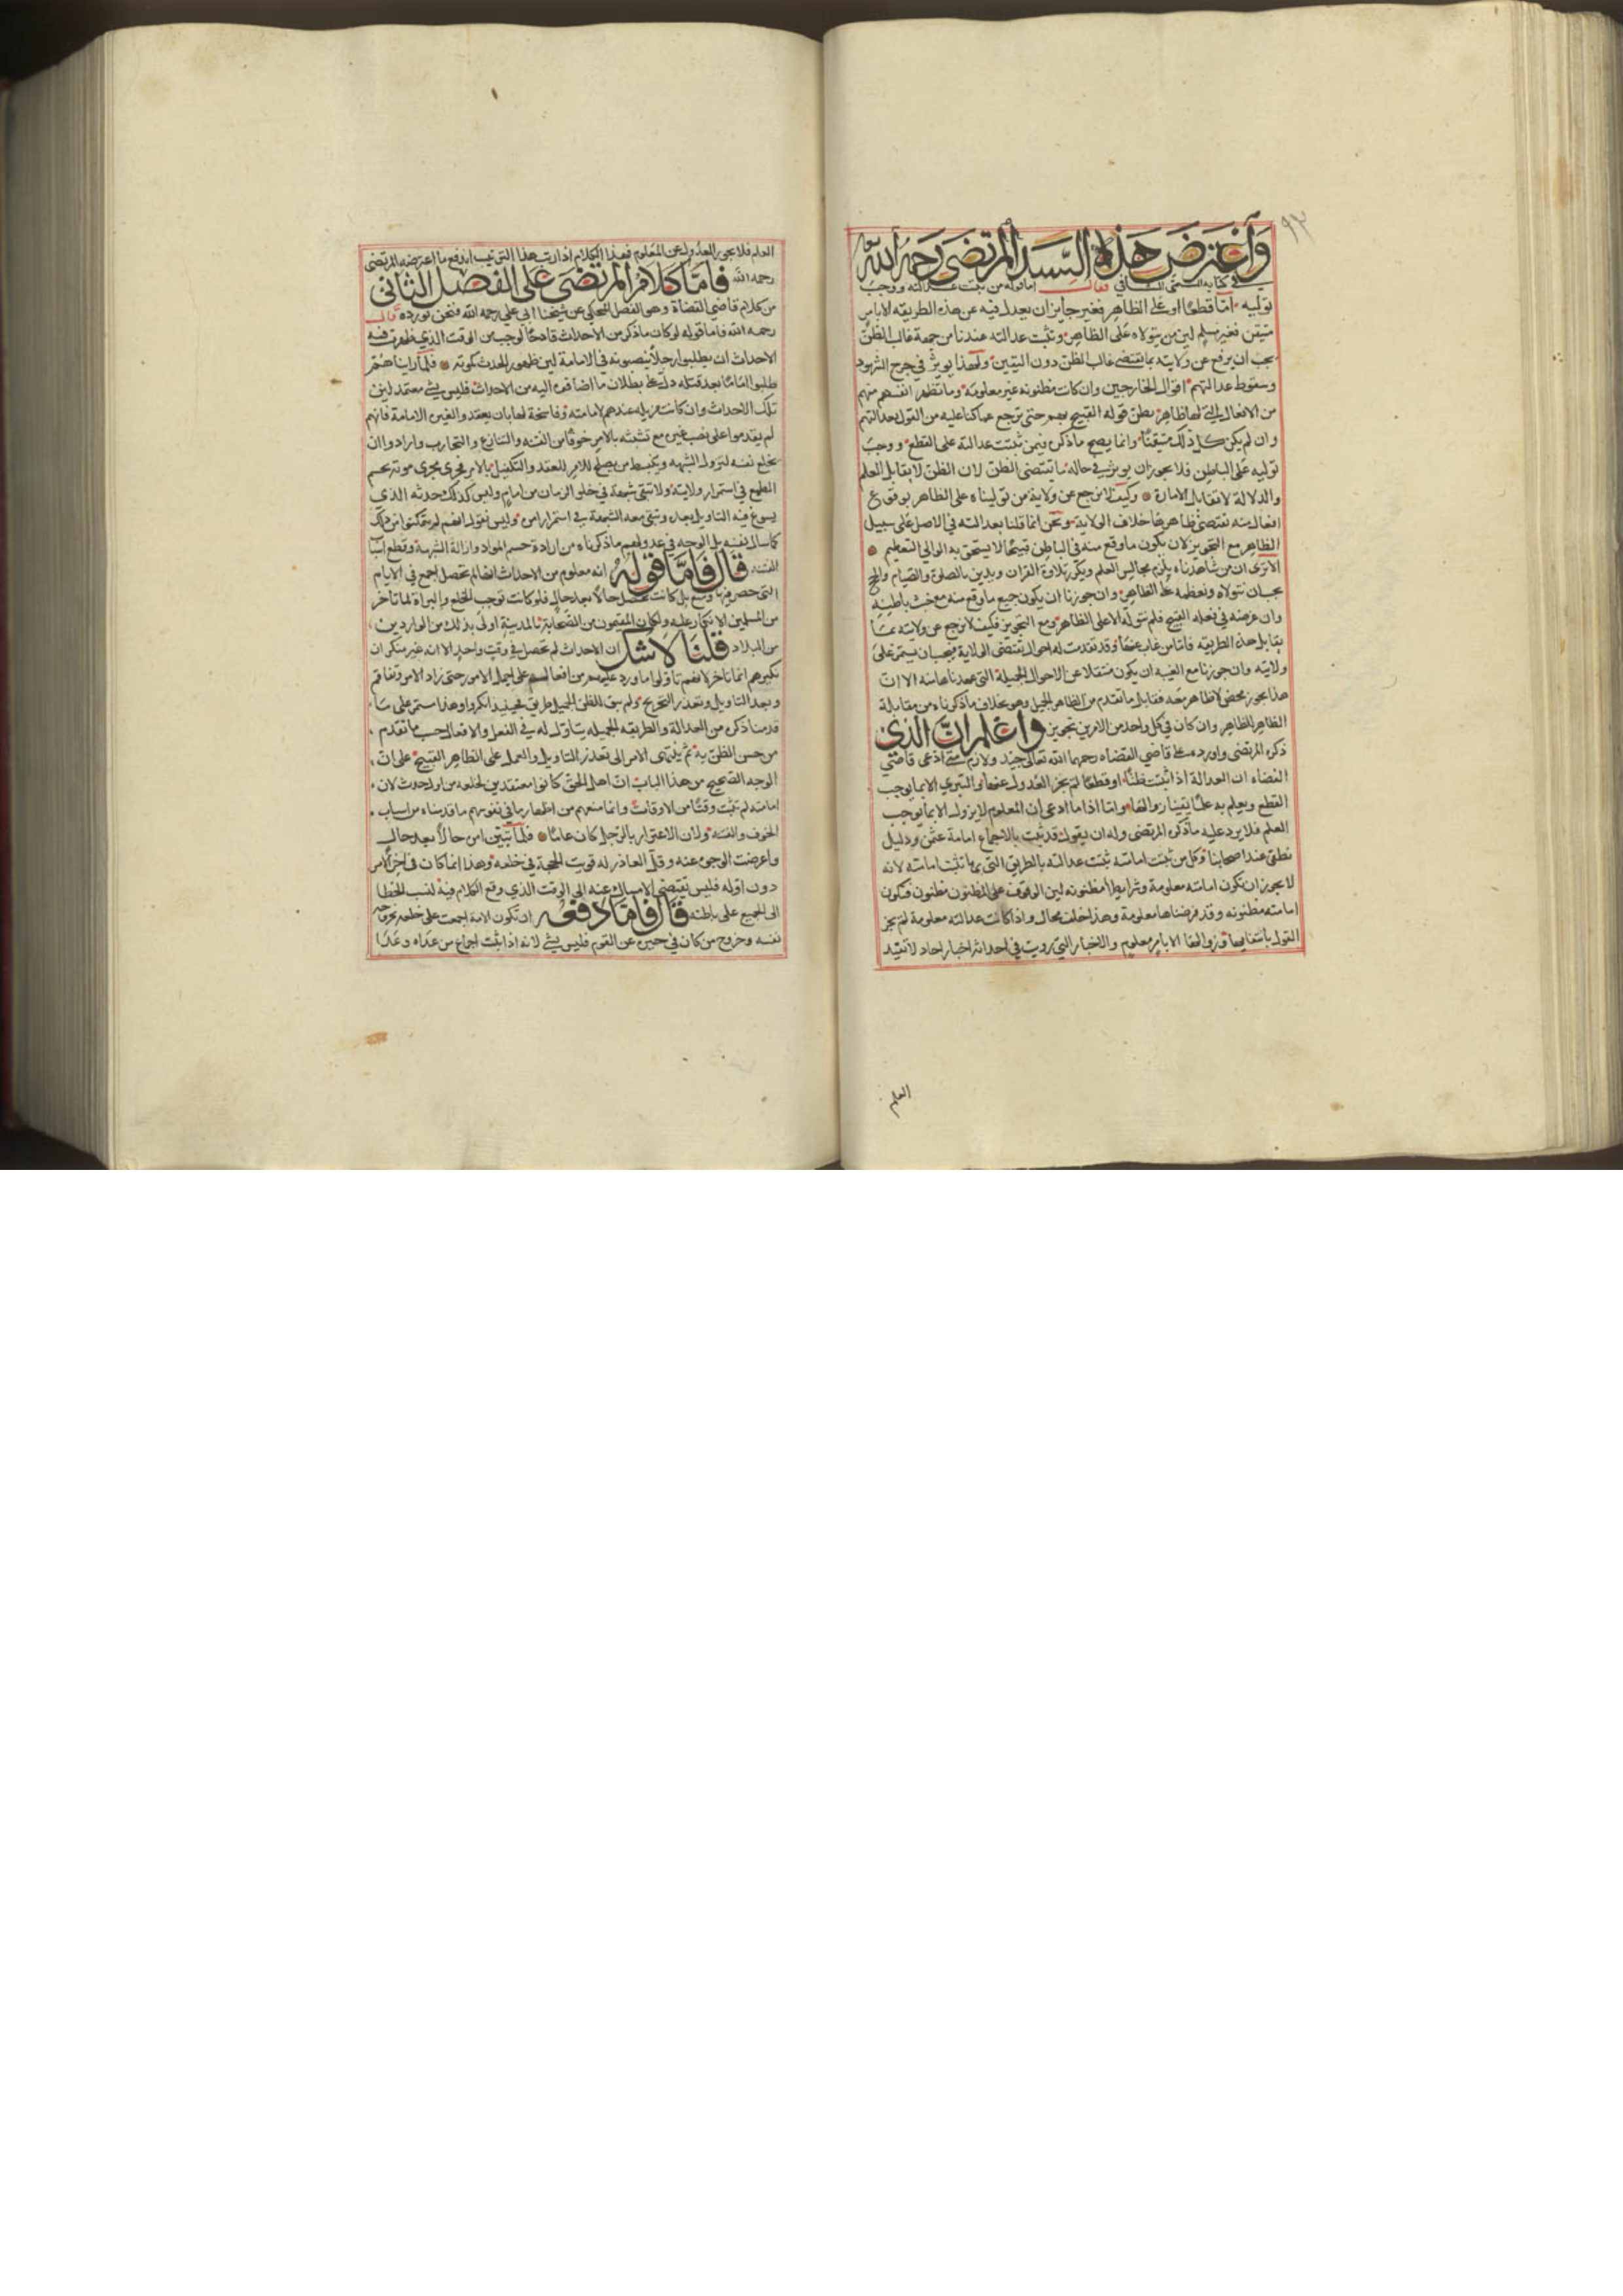 ٩٣
وَاعترَضَ هَذِهِ السَّيد المرتضَى رَحِمَهُ اللهُ
في كتابه المسمى الشافي فقال اما قوله من ثبتت عدالته ووجب
توليه امّا قطعًا او على الظاهر فغير جايز ان يعدل فيه عن هذه الطريقه الا بامرٍ
متيقن فغير مسلم لان من يتولاه على الظاهر وتثبت عدالته عندنا من جهة غالب الظنّ
يجب ان يرجع عن ولايته بما يقتضي غالب الظن دون اليقين ولهذا يوثر في جرح الشهود
وسقوط عدالتهم اقوال الجارحين وان كانت مظنونه غير معلومة وما تظهر انفسهم منهم
من الافعال التي لها ظاهر يظن قوله القبيح بهم حتى نرجع عما كنا عليه من القول بعدالتهم
وان لم يكن كل ذلك متيقنًا وانما يصح ما ذكره فيمن ثبتت عدالته على القطع ووجب
توليه على الباطن فلا يجوز ان يوثر في حاله ما يقتضي الظن لان الظن لا يقابل العلم
والدلالة لا تقابل الامارة وكيف لا نرجع عن ولاية من توليناه على الظاهر بوقوع
افعال منه تقتضي ظاهرها خلاف الولاية ونحن انما قلنا بعدالته في الاصل على سبيل
الظاهر مع التجويز لان يكون ما وقع منه في الباطن قبيحًا لا يستحق به الوالي التعظيم
الا ترى ان من شاهدناه يلزم مجالس العلم ويكرر تلاوة القران ويدين بالصلوة والصيام والحج
يجب ان نتولاه ونعظمه على الظاهر وان جوزنا ان يكون جميع ما وقع منه مع خبث باطنه
وان غرضه في فعله القبيح فلم نتوله الا على الظاهر ومع التجويز فكيف لا نرجع عن ولايته بما
يقابل هذه الطريقه فامّا من غاب عنّا وقد تقدمت له احوال تقتضي الولاية فيجب ان يستمر على
ولايته وان جوزنا مع الغيبه ان يكون منتقلا عن الاحوال الجميلة التي عهدناها منه الا انّ
هذا يجوز محض لا ظاهر معه فقابل ما تقدم من الظاهر الجميل وهو بخلاف ما ذكرناه من مقابلة
الظاهر للظاهر وان كان في كل واحد من الامرين تجويز وَاعْلَم انَّ الذي
ذكره المرتضى واورده على قاضي القضاه رحمهما الله تعالى جيد ولازم متى ادعى قاضي
القضاه ان العدالة اذا ثبتت ظنًّا او قطعًا لم يجز العدول عنها والتبري الا بما يوجب
القطع ويعلم به علمًا يقينا زوالها وامّا اذا ما ادعى ان المعلوم لا يزول الا بما يوجب
العلم فلا يرد عليه ما ذكره المرتضى وله ان يقول قد ثبت بالاجماع امامة عثمن ودليل
قطعي عند اصحابنا وكل من ثبتت امامته ثبتت عدالته بالطريق التي بها تثبت امامته لانه
لا يجوز ان تكون امامته معلومة وشرايطها مظنونه لان الموقوف على المظنون مظنون فتكون
امامته مظنونه وقد فرضناها معلومة وهذا خلف محال واذا كانت عدالته معلومة لم يجز
القول بانتفايها وزوالها الا بامر معلوم والاخبار التي رويت في احداثه اخبار احاد لا تفيد
العلم
العلم فلا يجوز العدول عن المعلوم فهذا الكلام اذا رتب هذا الترتيب اندفع ما اعترضه المرتضى
رحمه الله فَامَّا كَلامُ المرتضَى عَلى الفصل الثانِي
من كلام قاضي القضاة وهو الفصل المحكي عن شيخنا ابي علي رحمه الله فنحن نورده قال
رحمه الله فاما قوله لو كان ما ذكر من الاحداث قادحًا لوجب من الوقت الذي ظهرت فيه
الاحداث ان يطلبوا رجلًا ينصبونه في الامامة لان ظهور الحدث كموته فلمّا رايناهم
طلبوا امامًا بعد قتله دل على بطلان ما اضافوه اليه من الاحداث فليس بشي معتمد لان
تلك الاحداث وان كانت مزيلة عندهم لامامته وفاسخة لها بان يعقدوا لغيره الامامة فانهم
لم يقدموا على نصب غيره مع تشبثه بالامر خوفًا من الفتنه والتنازع والتجارب وارادوا ان
يخلع نفسه لتزول الشبهه وينبسط من يصلح للامر للعقد والتكفيل بالامر فجرى مجرى موته بحسم
الطمع في استمرار ولايته ولا تبقى شبهة في خلو الزمان من امام وليس كذلك حدثه الذي
يسوغ فيه التاويل بعده وتبقى معه الشبهة في استمرار امره وليس نقول انهم لم يتمكنوا من ذلك
كما سال نفسه بل الوجه في عدولهم ما ذكرناه من ارادة حسم المواد وازالة الشبهة وقطع اسباب
الفتنه قَالَ فَامَّا قولُهُ انه معلوم من الاحداث انها لم تحصل اجمع في الايام
التي حصر فيها ومنع بل كانت تحصل حالًا بعد حال فلو كانت توجب الخلع والبراة لما تاخر
من المسلمين الانكار عليه ولكان المقيمون من الصحابة بالمدينة اولى بذلك من الواردين
من البلاد قُلنَا لا شك ان الاحداث لم تحصل في وقت واحد الا انه غير منكر ان
نكيرهم انما تاخر لانهم تاولوا ما ورد عليهم من افعاله على اجمل الامور حتى زاد الامر وتفاقم
وبعد التاويل وتعذر التخريج ولم يبق للظن الجميل طريق فحينيذ انكروا وهذا مستمر على ما
قدمنا ذكره من العدالة والطريقه الجميله يتاول له في الفعل والافعال حسب ما تقدم
من حسن الظن به ثم ينتهي الامر الى تعذر التاويل والعمل على الظاهر القبيح على انّ
الوجه الصحيح من هذا الباب انّ اهل الحق كانوا معتقدين لخلعه من اول حدث لان
امامته لم تثبت وقتًا من الاوقات وانما منعهم من اظهار ما في نفوسهم ما قدمناه من اسباب
الخوف والفتنه ولان الاعتزار بالرجل كان عامًّا فلمّا تبين امره حالًا بعد حال
واعرضت الوجوه عنه وقلّ العاذر له قويت الحجة في خلعه وهذا انما كان في اخر الامر
دون اوله فليس يقتضي الامساك عنه الى الوقت الذي وقع الكلام فيه لنسب الخطا
الى الجميع على ما ظنه قَالَ فَامَّا دَفعُه ان تكون الامة اجمعت على خلعه بخروجه
نفسه وخروج من كان في حيزه عن القوم فليس بشي لانه اذا ثبت اجماع من عداه وعدا